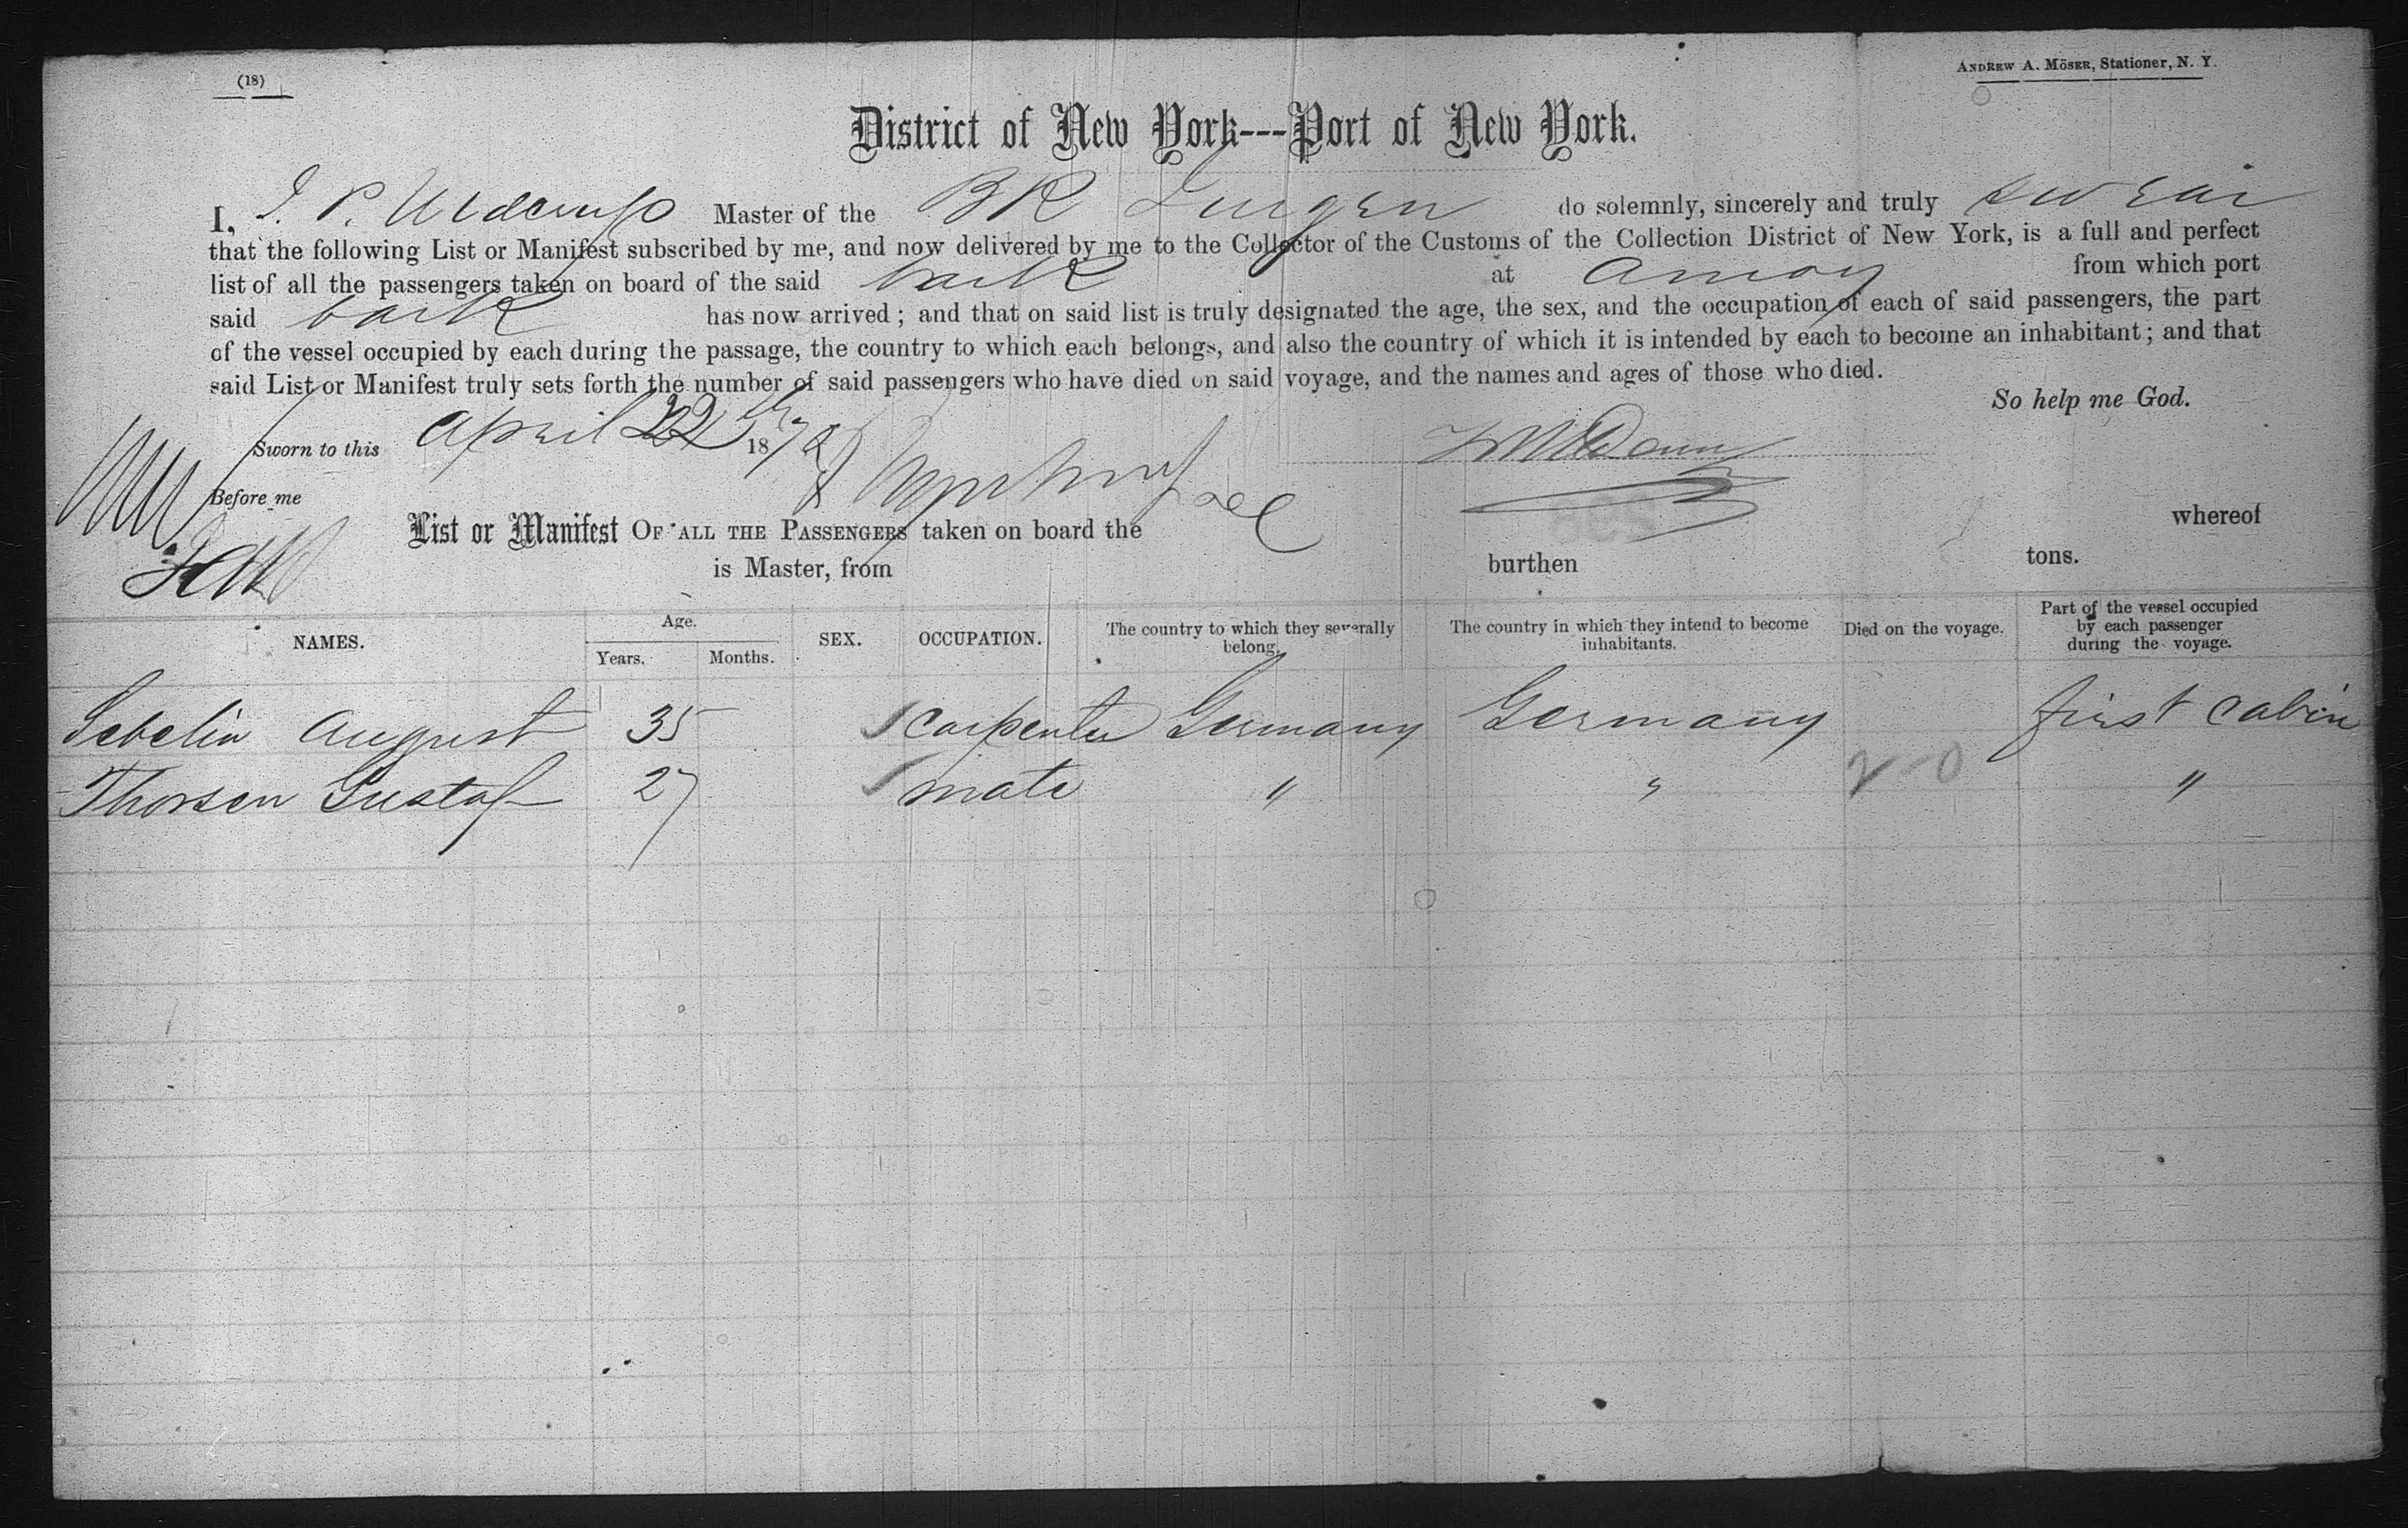 (18)
ANDREW A. MÖSER, Stationer, N. Y.
District of New York---Port of New York.
I, J. P. Master of the BK Jurgen do solemnly, sincerely and truly swear
that the following List or Manifest subscribed by me, and now delivered by me to the Collector of the Customs of the Collection District of New York, is a full and perfect
list of all the passengers taken on board of the said bark at Amoy from which port
said bark has now arrived; and that on said list is truly designated the age, the sex, and the occupation of each of said passengers, the part
of the vessel occupied by each during the passage, the country to which each belongs, and also the country of which it is intended by each to become an inhabitant; and that
said List or Manifest truly sets forth the number of said passengers who have died on said voyage, and the names and ages of those who died.
So help me God.
Sworn to this April 22 1878
Before me
List or Manifest OF ALL THE PASSENGERS taken on board the whereof
is Master, from burthen tons.
NAMES. Age. Years. Months. SEX. OCCUPATION. The country to which they severally belong. The country in which they intend to become inhabitants. Died on the voyage. Part of the vessel occupied by each passenger during the voyage.
Sebelin August 35 carpenter Germany Germany first cabin
Thorsen Gustaf 27 mate " " "